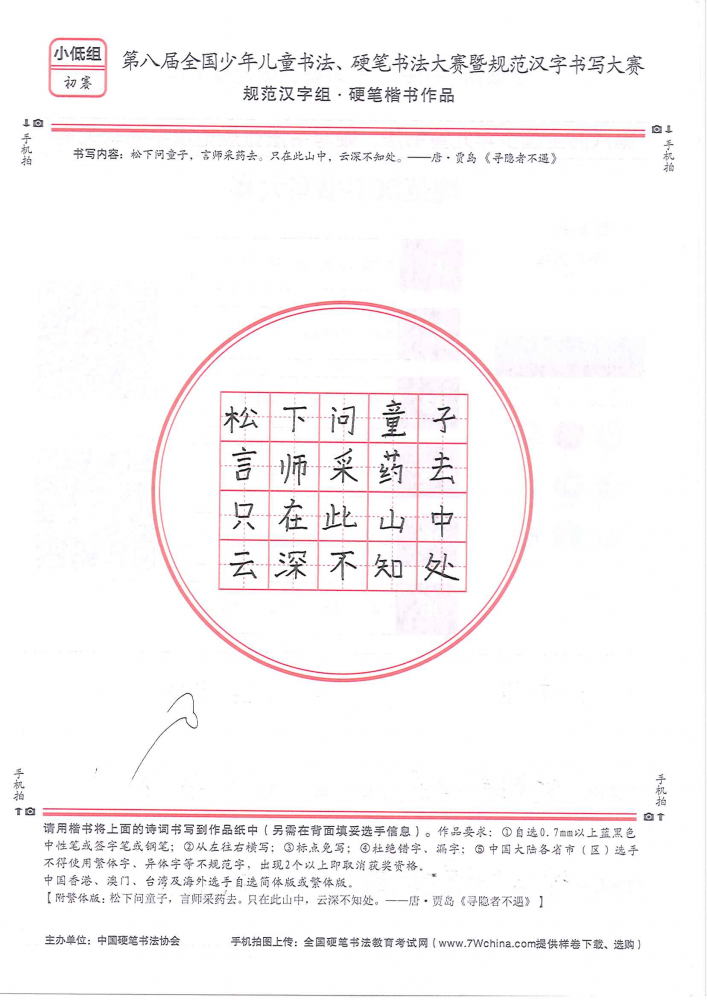 小低组
初赛
第八届全国少年儿童书法、硬笔书法大赛暨规范汉字书写大赛
规范汉字组·硬笔楷书作品
手机拍
手机拍
书写内容：松下问童子，言师采药去。只在此山中，云深不知处。——唐·贾岛《寻隐者不遇》
松下问童子
言师采药去
只在此山中
云深不知处
手机拍
手机拍
请用楷书将上面的诗词书写到作品纸中（另需在背面填妥选手信息）。作品要求：①自选0.7mm以上蓝黑色
中性笔或签字笔或钢笔；②从左往右横写；③标点免写；④杜绝错字、漏字；⑤中国大陆各省市（区）选手
不得使用繁体字、异体字等不规范字，出现2个以上即取消获奖资格。
中国香港、澳门、台湾及海外选手自选简体版或繁体版。
【附繁体版：松下问童子，言师采药去。只在此山中，云深不知处。——唐·贾岛《寻隐者不遇》】
主办单位：中国硬笔书法协会 手机拍图上传：全国硬笔书法教育考试网（www.7Wchina.com提供样卷下载、选购）